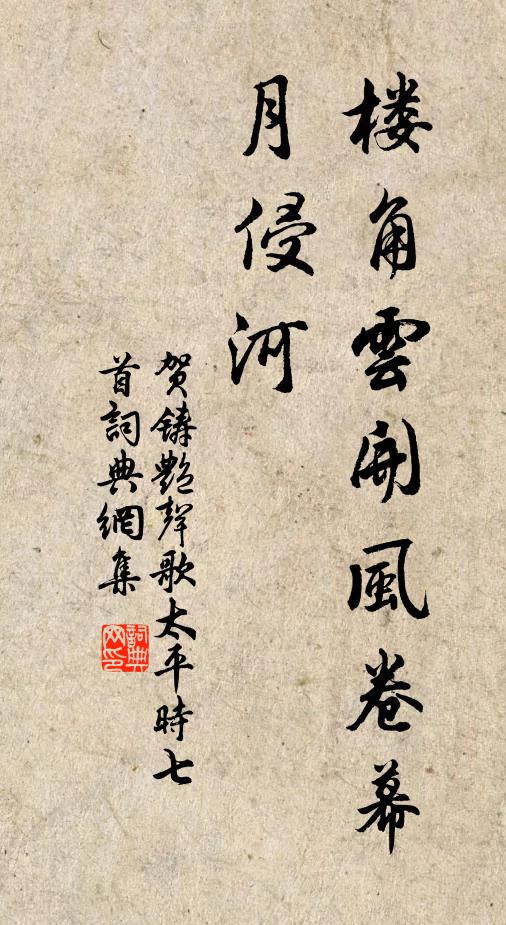 楼角雲開風卷幕
月侵河
賀鑄艷聲歌太平時七
首詞典網集
詞典网印